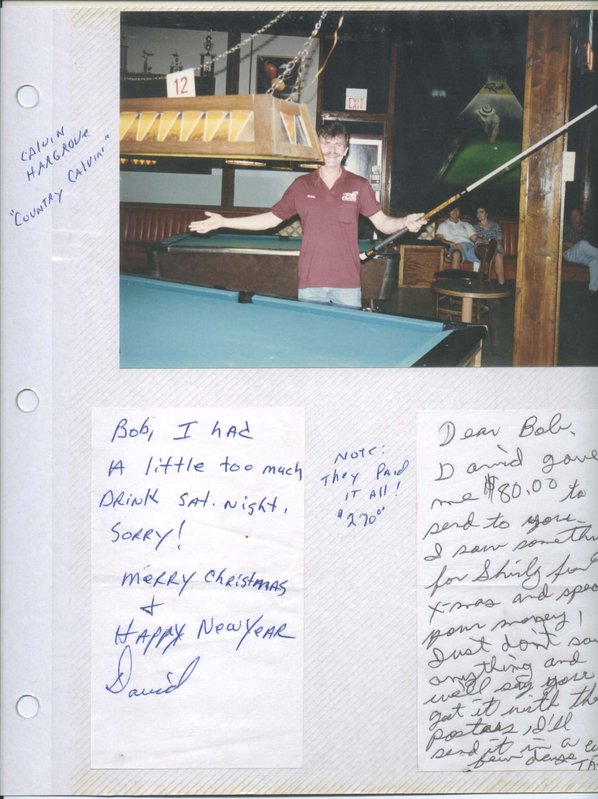 12
EXIT
CALVIN
HARGROVE
"COUNTRY CALVIN"
Bob, I had
A little too much
DRINK SAT. Night,
SORRY!
MERRY Christmas
+
HAPPY New YEAR
David
NOTE:
They Paid
IT All!
$270
Dear Bob,
David gave
me $80.00 to
send to you.
I saw someth
for Shirly
X-mas and spe
your money!
Just don't sa
anything and
we'll say your
get it with the
Posters, I'll
send it in a
few days